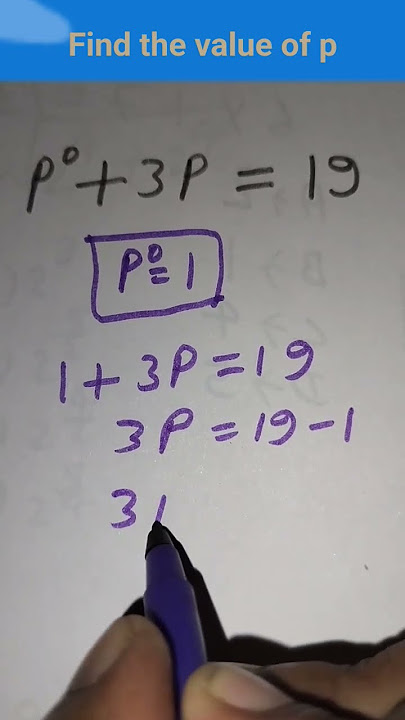 Find the value of p
p⁰+3p = 19
p⁰=1
1+3p=19
3p=19-1
3